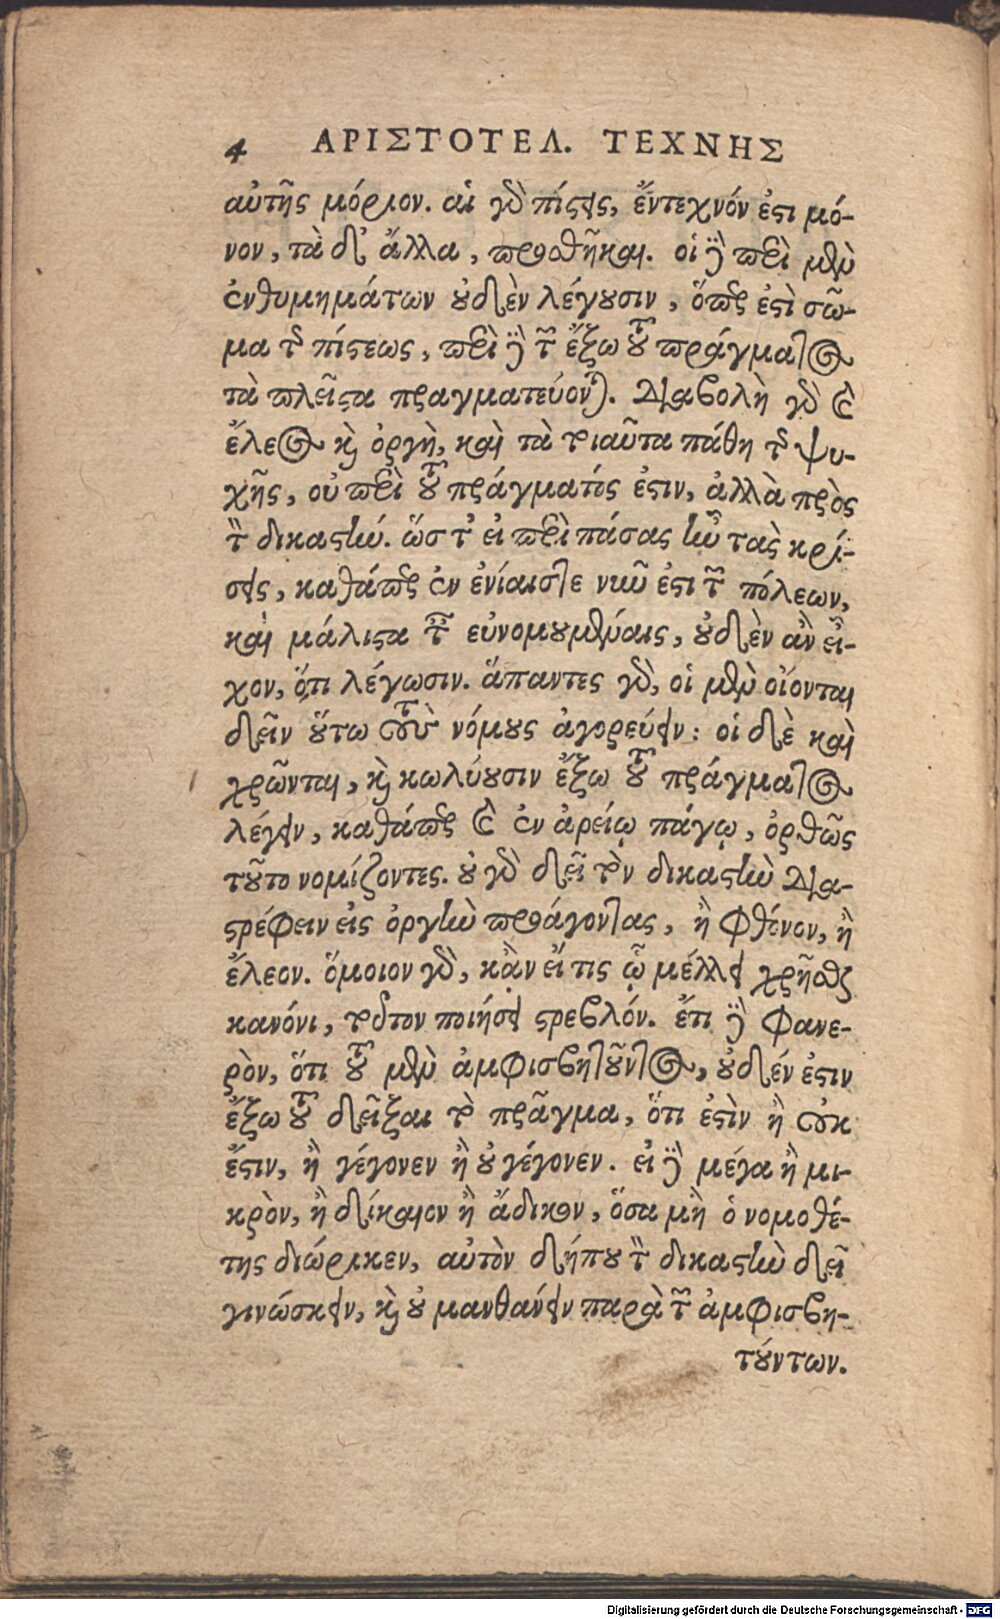 4 ΑΡΙΣΤΟΤΕΛ. ΤΕΧΝΗΣ
αὐτῆς μόριον. αἱ γὸ πίστεις, ἔντεχνόν ἐστι μό-
νον, τὰ δ' ἄλλα, προσθῆκαι. οἱ δὲ περὶ μὲν
ἐνθυμημάτων οὐδὲν λέγουσιν, ὅπερ ἐστὶ σῶ-
μα τῆς πίστεως, περὶ δὲ τῶν ἔξω τοῦ πράγματος
τὰ πλεῖστα πραγματεύονται. Διαβολὴ γὰρ καὶ
ἔλεος καὶ ὀργὴ, καὶ τὰ τοιαῦτα πάθη τῆς ψυ-
χῆς, οὐ περὶ τοῦ πράγματός ἐστιν, ἀλλὰ πρὸς
τὸν δικαστήν. ὥστ' εἰ περὶ πάσας ἦν τὰς κρί-
σεις, καθάπερ ἐν ἐνίαις τε νῦν ἐστι τῶν πόλεων,
καὶ μάλιστα ταῖς εὐνομουμέναις, οὐδὲν ἂν εἶ-
χον, ὅτι λέγωσιν. ἅπαντες γὰρ, οἱ μὲν οἴονται
δεῖν οὕτω τοὺς νόμους ἀγορεύειν: οἱ δὲ καὶ
χρῶνται, καὶ κωλύουσιν ἔξω τοῦ πράγματος
λέγειν, καθάπερ καὶ ἐν ἀρείῳ πάγῳ, ὀρθῶς
τοῦτο νομίζοντες. οὐ γὰρ δεῖ τὸν δικαστὴν δια-
στρέφειν εἰς ὀργὴν προάγοντας, ἢ φθόνον, ἢ
ἔλεον. ὅμοιον γὰρ, κἂν εἴ τις ᾧ μέλλει χρῆσθαι
κανόνι, τοῦτον ποιήσει στρεβλόν. ἔτι δὲ φανε-
ρὸν, ὅτι τοῦ μὲν ἀμφισβητοῦντος, οὐδέν ἐστιν
ἔξω τοῦ δεῖξαι τὸ πρᾶγμα, ὅτι ἐστὶν ἢ οὐκ
ἔστιν, ἢ γέγονεν ἢ οὐ γέγονεν. εἰ δὲ μέγα ἢ μι-
κρὸν, ἢ δίκαιον ἢ ἄδικον, ὅσα μὴ ὁ νομοθέ-
της διώρικεν, αὐτὸν δήπου τὸν δικαστὴν δεῖ
γινώσκειν, καὶ οὐ μανθάνειν παρὰ τῶν ἀμφισβη-
τούντων.
Digitalisierung gefördert durch die Deutsche Forschungsgemeinschaft - DFG